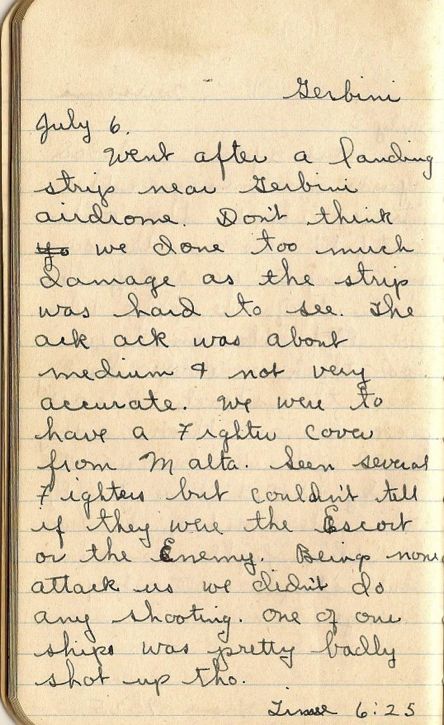 Gerbini
July 6.
Went after a landing
strip near Gerbini
airdrome. Don't think
we done too much
damage as the strip
was hard to see. The
ack ack was about
medium & not very
accurate. We were to
have a Fighter cover
from Malta. Seen several
Fighters but couldn't tell
if they were the Escort
or the Enemy. Being none
attack us we didn't do
any shooting. One of our
ships was pretty badly
shot up tho.
Time 6:25